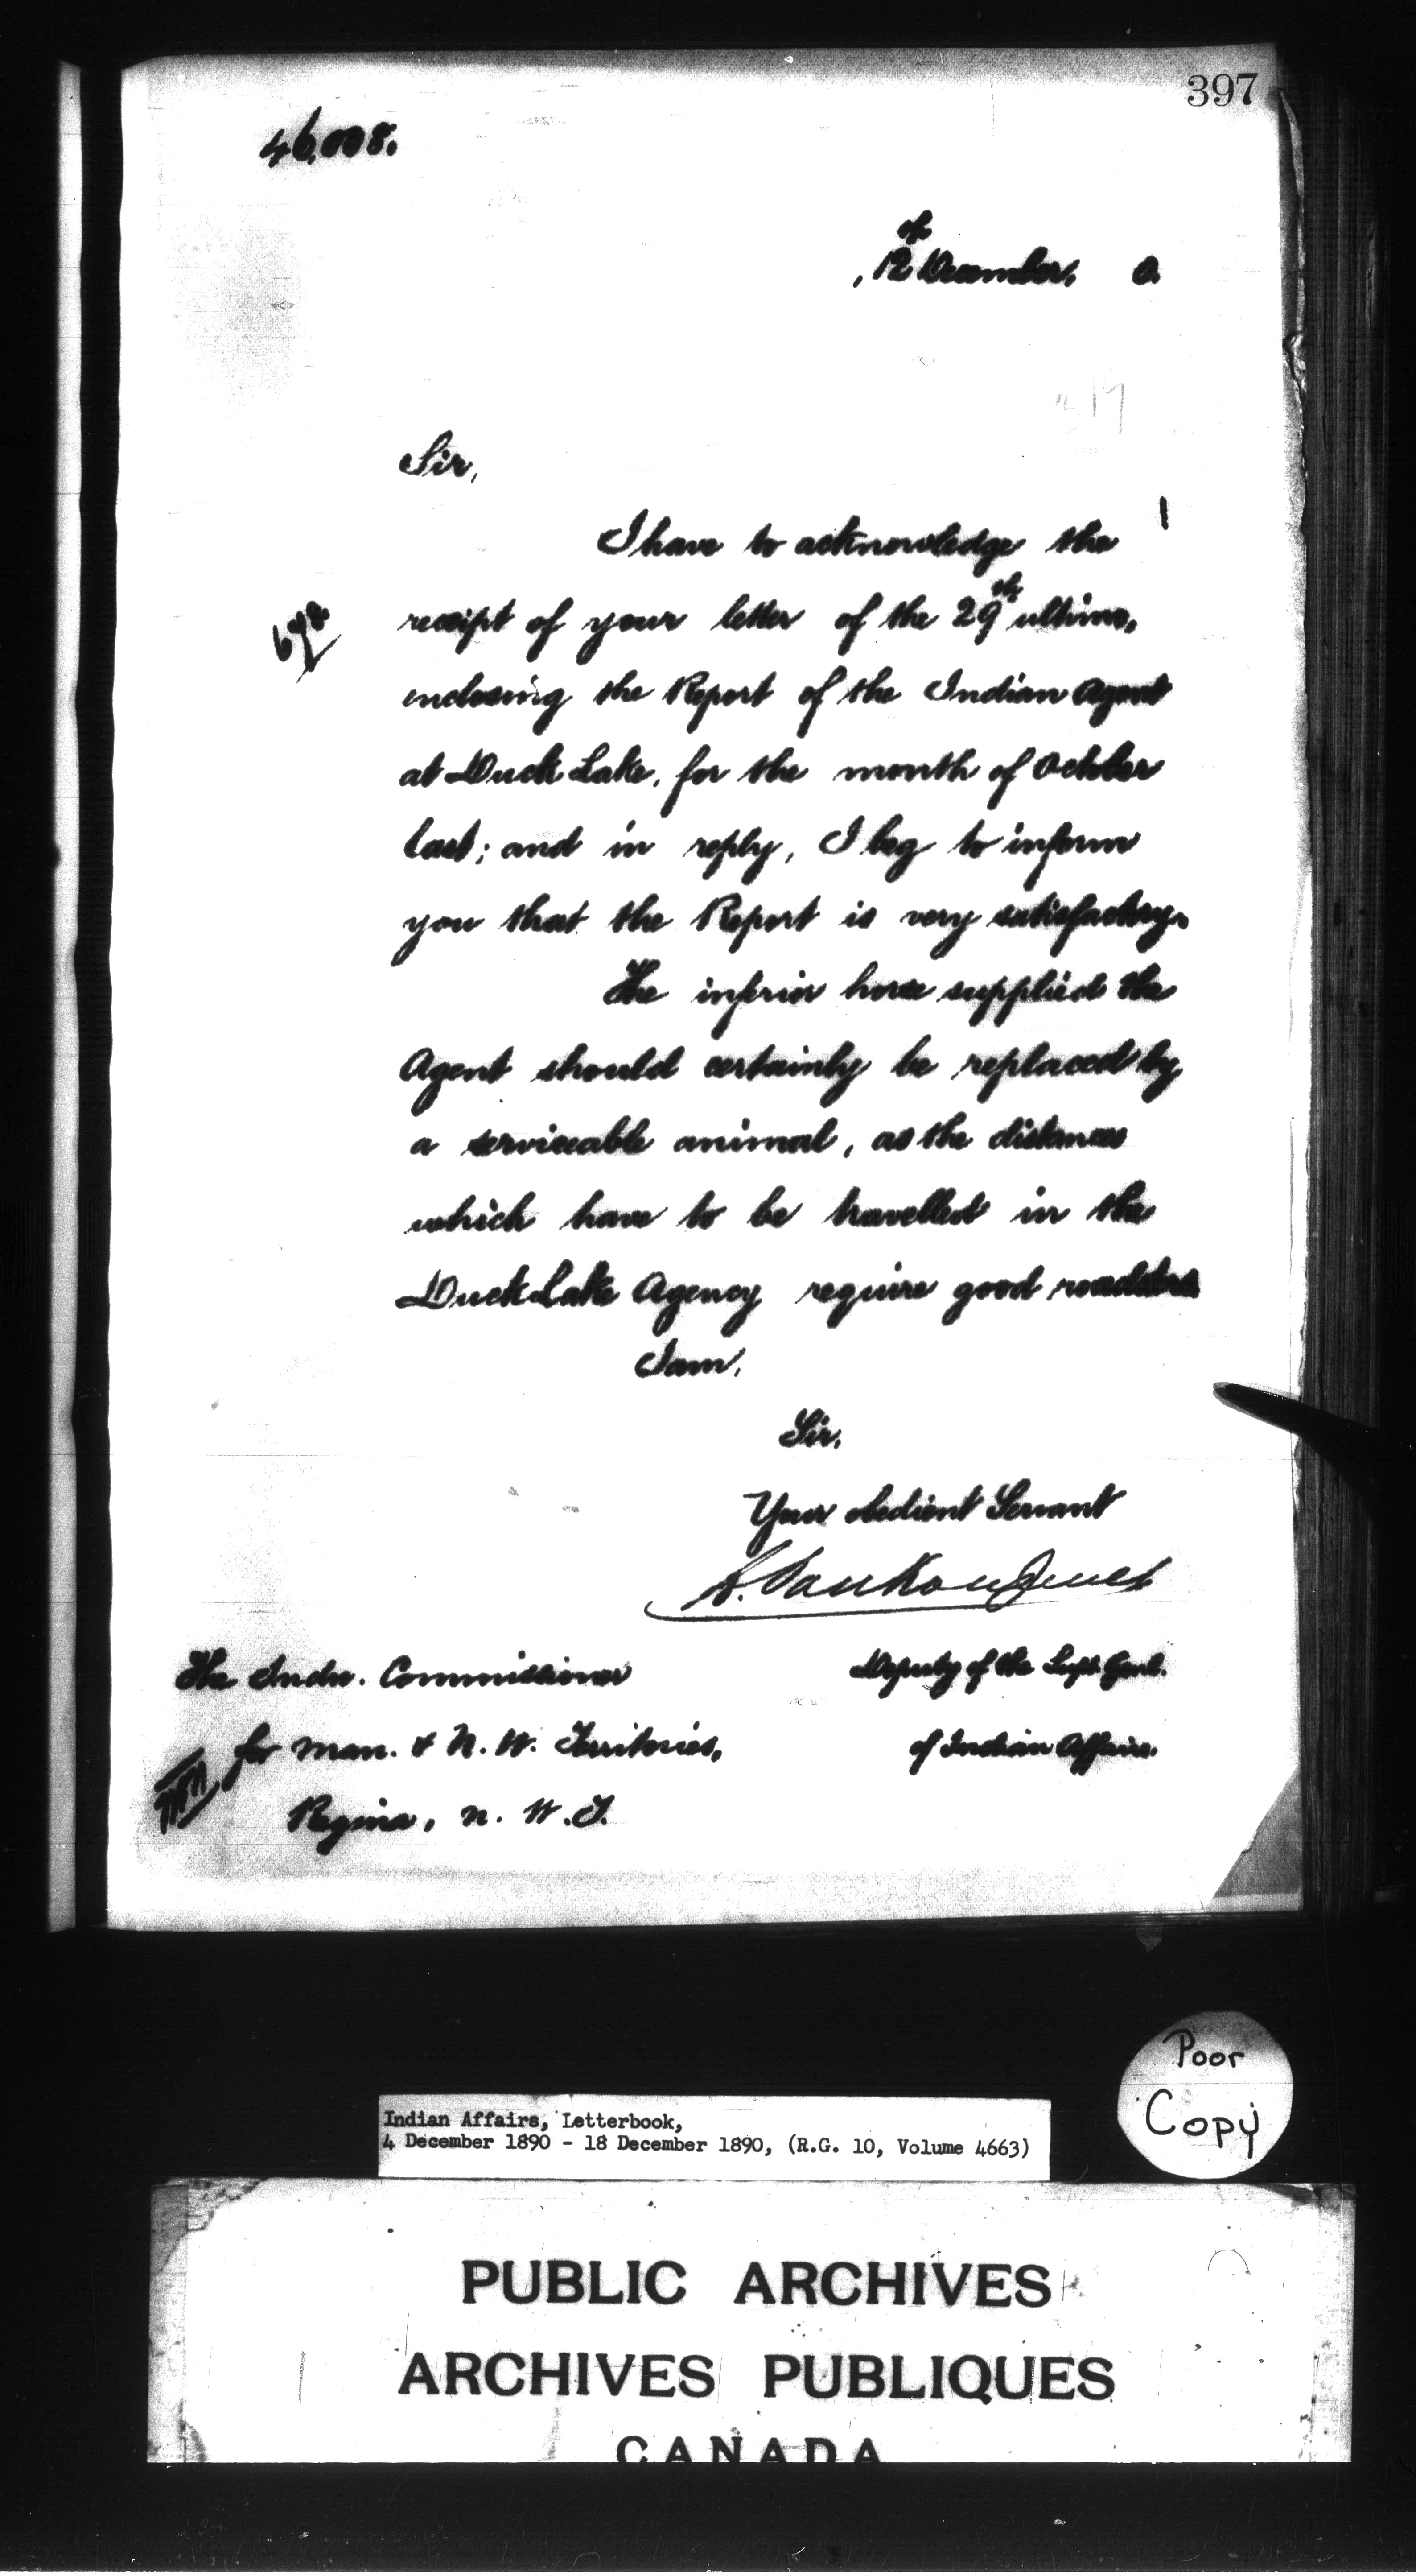 397
46,008.
, 12th December, 0.
317
Sir,
I have to acknowledge the
receipt of your letter of the 29th ultimo,
enclosing the Report of the Indian Agent
at Duck Lake, for the month of October
last; and in reply, I beg to inform
you that the Report is very satisfactory.
The inferior horse supplied the
Agent should certainly be replaced by
a serviceable animal, as the distances
which have to be travelled in the
Duck Lake Agency require good roadsters
I am,
Sir,
Your obedient Servant
L. Vankoughnet
Deputy of the Supt. Genl.
of Indian Affairs.
The Indn. Commissioner
for Man. & N. W. Territories,
Regina, N. W. T.
Poor
Copy
Indian Affairs, Letterbook,
4 December 1890 - 18 December 1890, (R.G. 10, Volume 4663)
PUBLIC ARCHIVES
ARCHIVES PUBLIQUES
CANADA